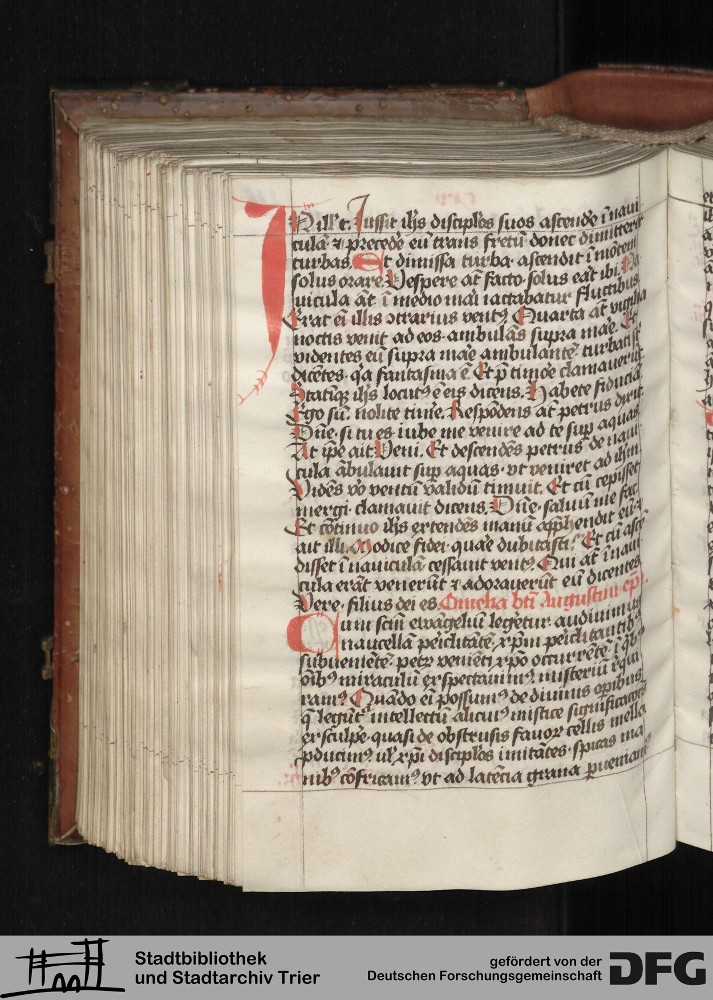 In ill't. Iussit ih's discip̄los suos ascendē ī navi
culā ⁊ precedē eū trans fretū donec dimitteret
turbas. Et dimissa turba ascendit ī mōtem
solus orare. Vespere āt facto solus eāt ibi. Na
uicula āt ī medio mari iactabatur fluctibus
Erat eī illis ɔtrarius ventꝰ Quarta āt vigilia
noctis venit ad eos ambulās supra maē. Et
videntes eū supra maē ambulantē turbati st̄
dicētes. qa fantasma ē Et p̄ timoē clamauerūt
Statīqꝫ ih's locutꝰ ē eis dicens. Habete fiduciā
Ego sū. nolite timē. Respōdens āt petrus dixit
Dn̄e. si tu es iube me venire ad te suꝑ aquas
At ip̄e ait Veni. Et descendēs petrus de naui
cula ābulauit suꝑ aquas. vt veniret ad ih'm
Vidēs vo ventū validū timuit. Et cū cepisset
mergi. clamauit dicens. Dn̄e. saluū me fac
Et cōtinuo ih's extendēs manū app̄hendit eū ⁊
ait illi. Modice fidei. quaē dubitasti. Et cū ascē
disset ī nauiculā cessauit ventꝰ. Qui āt ī naui
cula erāt venerūt ⁊ adorauerūt eū dicentes
Vere. filius dei es. Omelia bt̄i Augustini ep̄i.
Cum scm̄ ewāgeliū legetur audiuimus
nauicellā peīclitātē. xp̄m peīclitantibꝰ
subueniētē. petꝝ veniēti xp̄o occurrētē. ī qibꝰ
oībꝰ miraculū exspectauimꝰ misteriū reqi
ramꝰ Quādo eī possumꝰ de diuinis oꝑibus
q̄ legūt intellectū alicuiꝰ mistice significatōis
exsculpe. quasi de obstrusis fauor cellis mella
ꝓducimꝰ ul' xp̄i discip̄los imitātes. spicas ma
nibꝰ cōfricamꝰ vt ad latēcia grana ꝑueniamꝰ
Stadtbibliothek
und Stadtarchiv Trier
gefördert von der
Deutschen Forschungsgemeinschaft
DFG